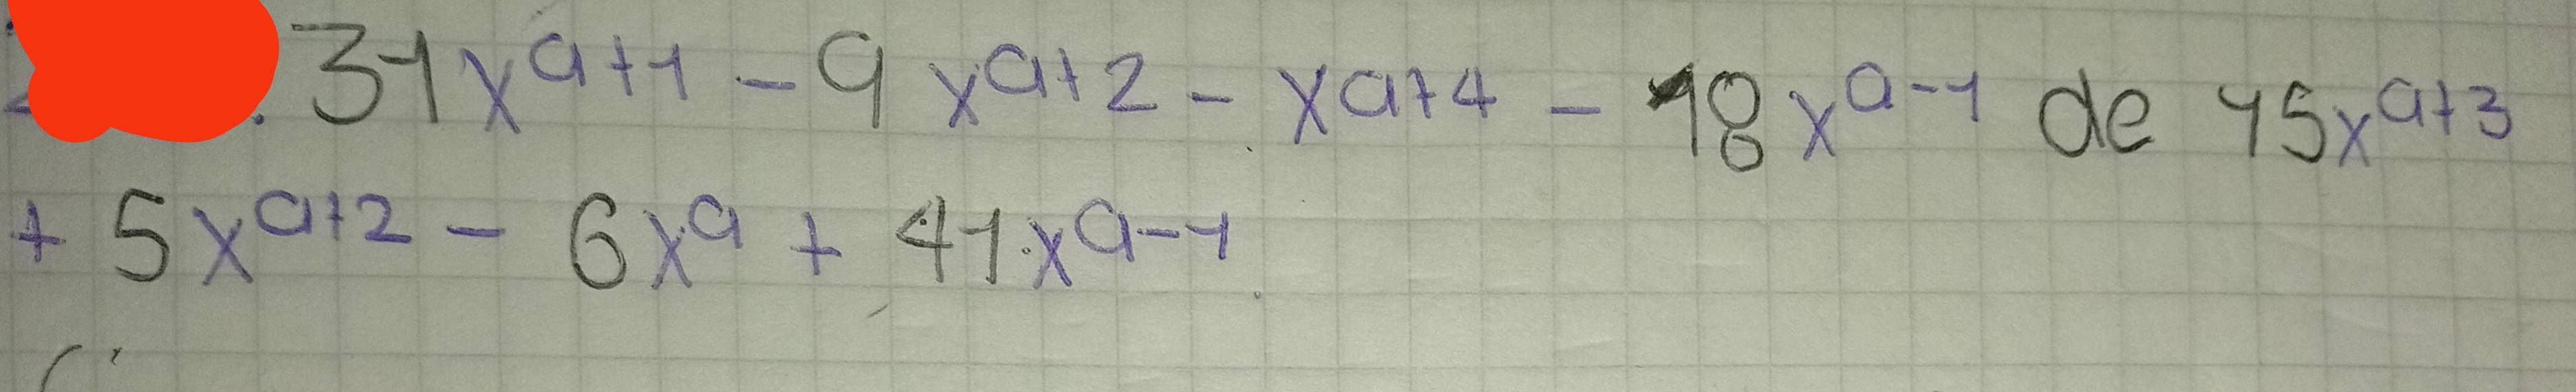 . 31x^{a+1} - 9x^{a+2} - x^{a+4} - 18x^{a-1} de 15x^{a+3}
+ 5x^{a+2} - 6x^{a} + 41x^{a-1}